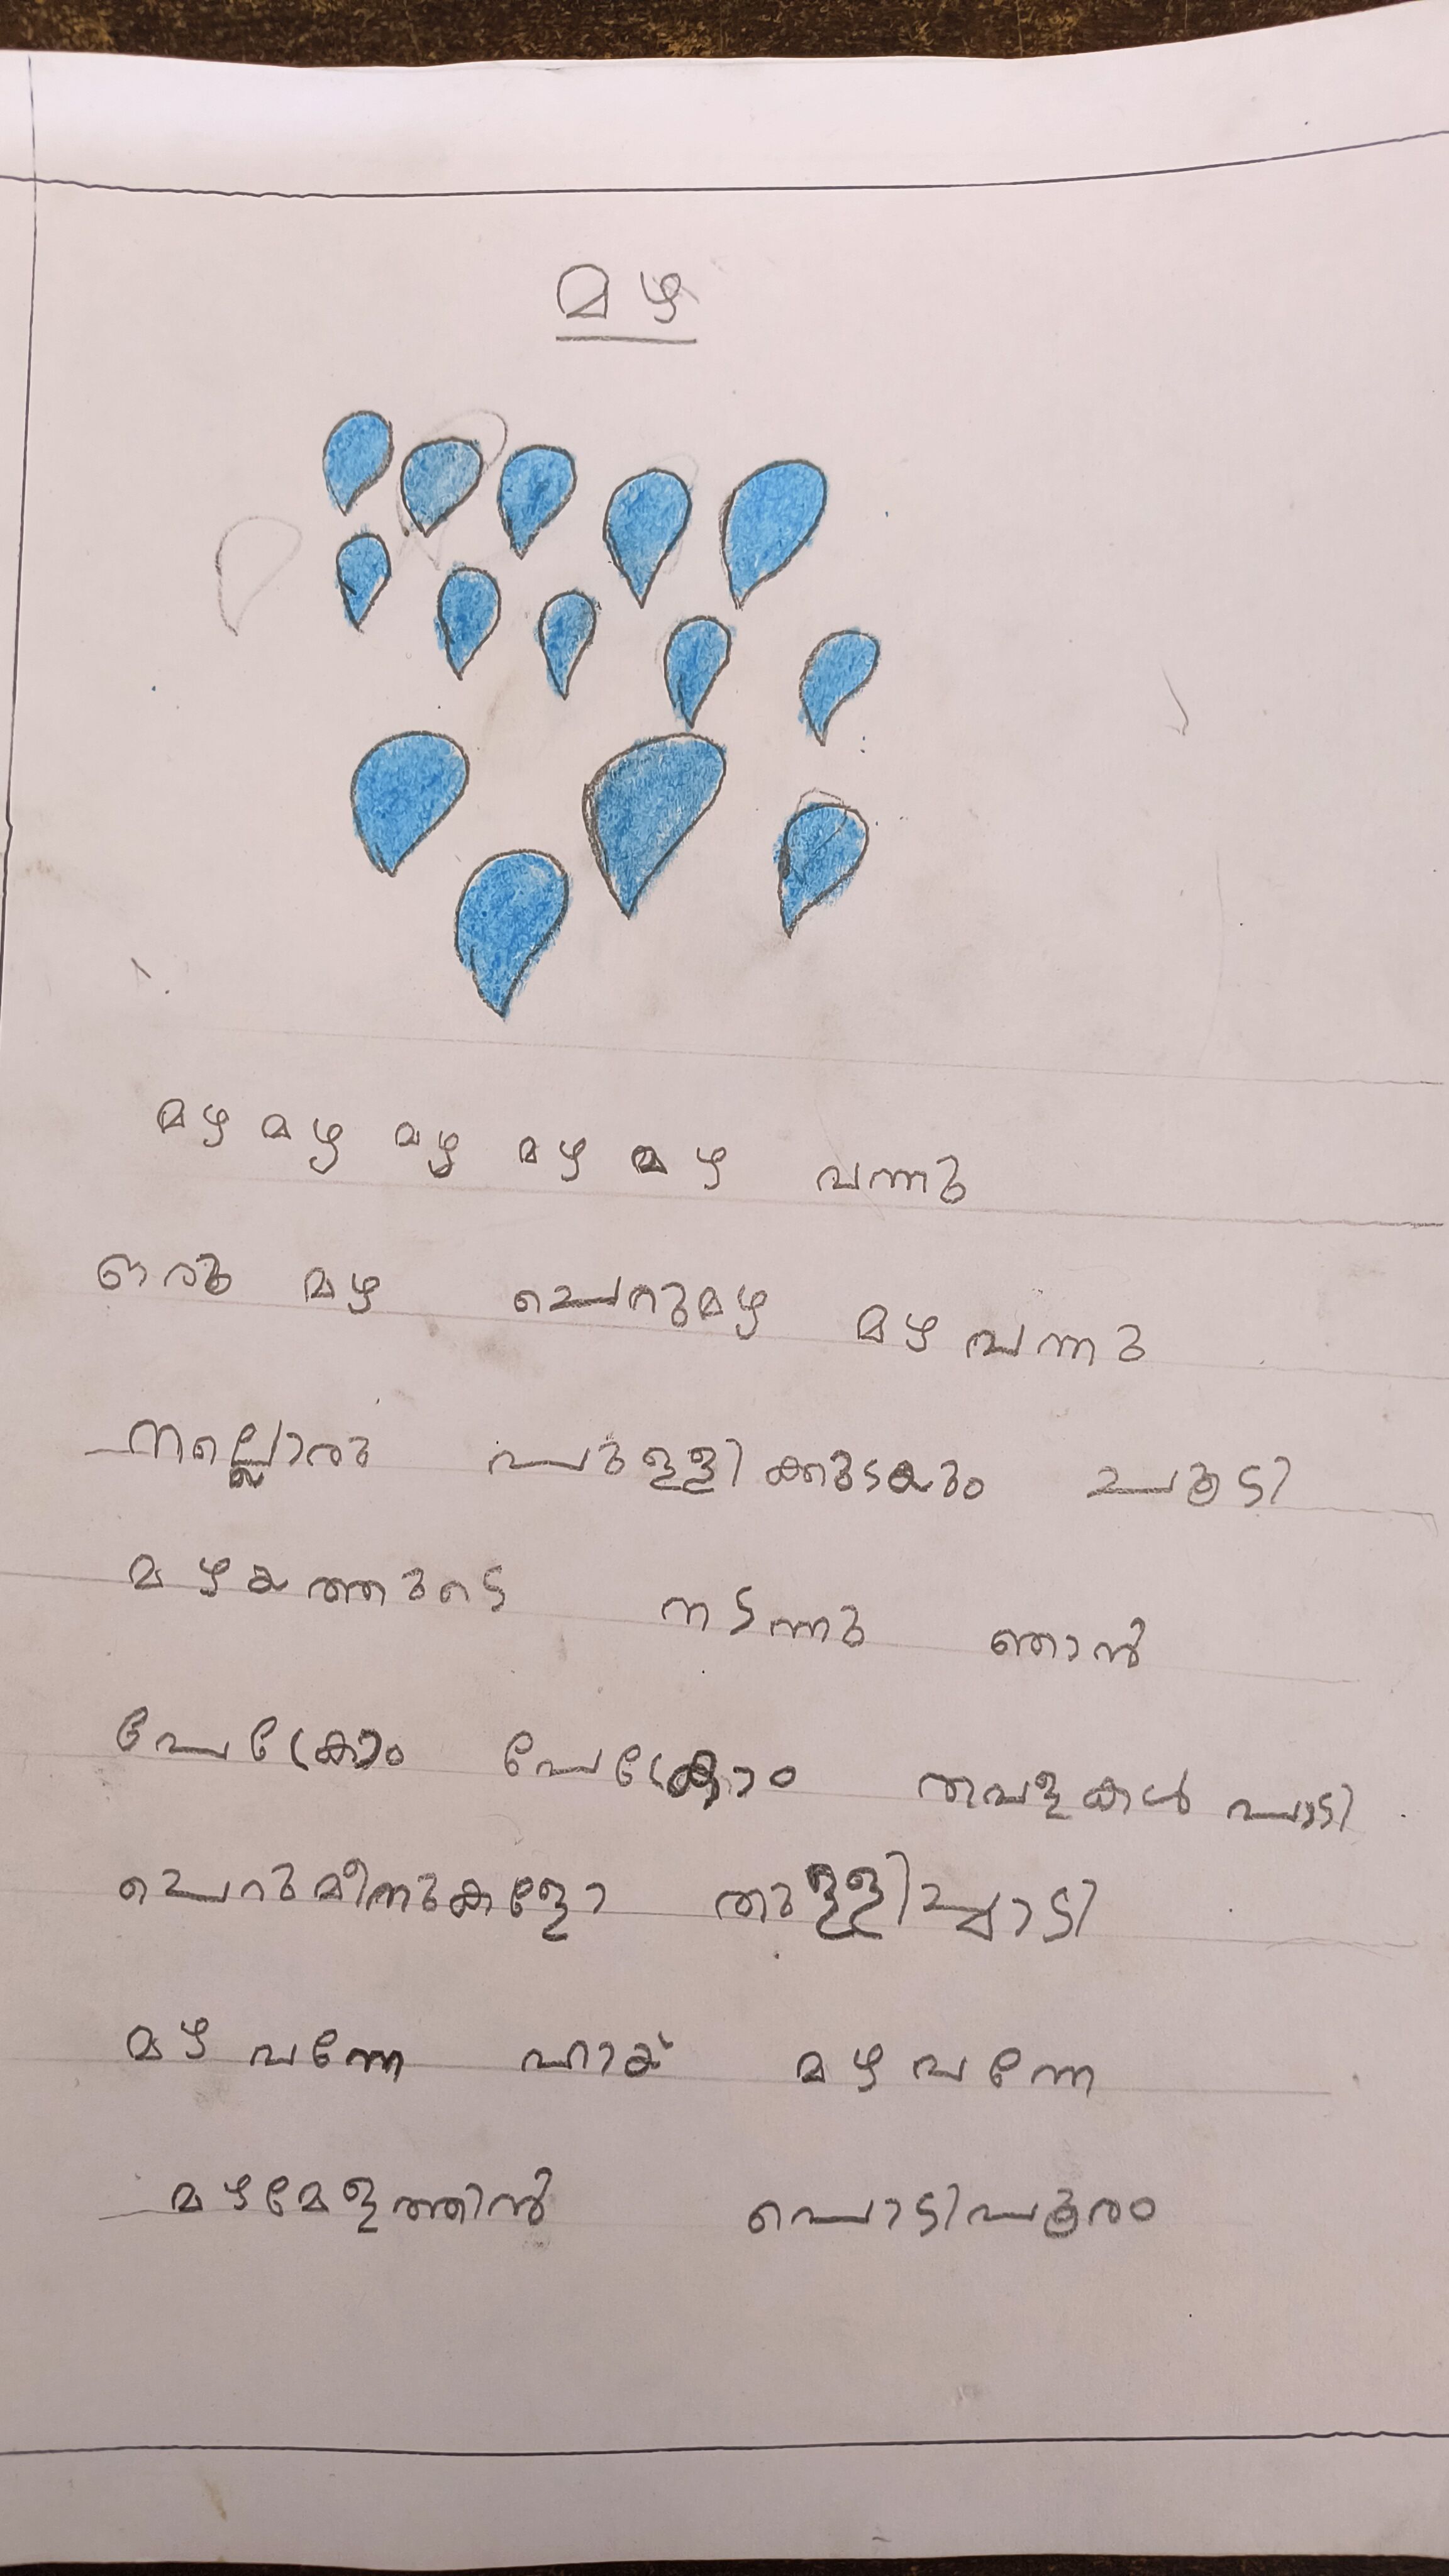 മഴ
മഴ മഴ മഴ മഴ മഴ വന്നു
ഒരു മഴ ചെറുമഴ മഴ വന്നു
നല്ലൊരു പുള്ളിക്കുടയും ചൂടി
മഴയത്തുടെ നടന്നു ഞാൻ
പേക്രോം പേക്രോം തവളകൾ പാടി
ചെറുമീനുകളോ തുള്ളിച്ചാടി
മഴ വന്നേ ഹായ് മഴ വന്നേ
മഴമേളത്തിൻ പൊടിപൂരം